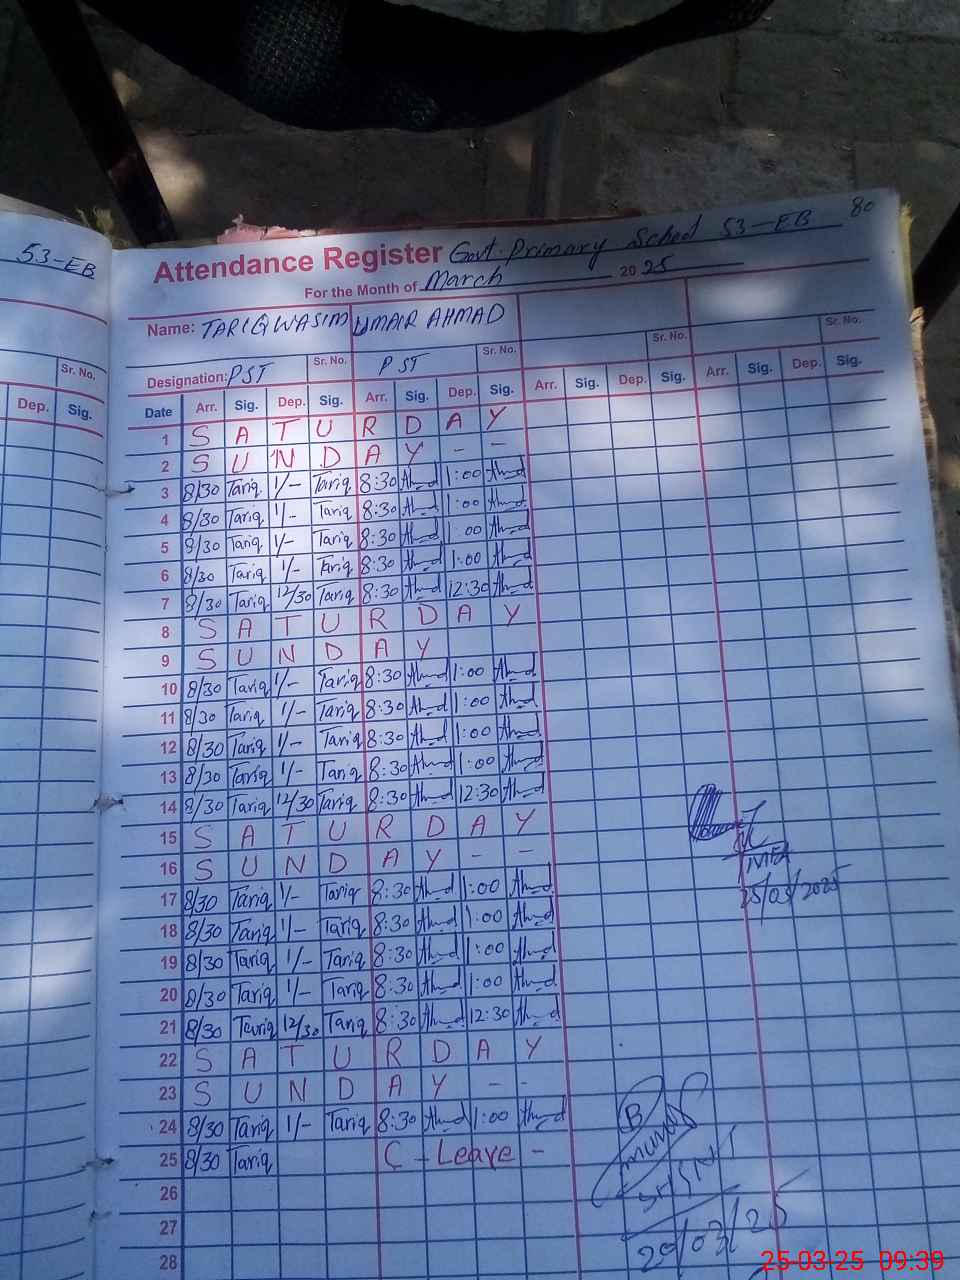 53-EB
Sr. No.
Dep. Sig.
80
Attendance Register Govt. Primary School 53-EB
For the Month of March 2025
Name: TARIQ WASIM UMAIR AHMAD
Sr. No. Sr. No. Sr. No. Sr. No.
Designation: PST PST
Date Arr. Sig. Dep. Sig. Arr. Sig. Dep. Sig. Arr. Sig. Dep. Sig. Arr. Sig. Dep. Sig.
1 S A T U R D A Y
2 S U N D A Y - -
3 8/30 Tariq 1/- Tariq 8:30 Ahmd 1:00 Ahmd
4 8/30 Tariq 1/- Tariq 8:30 Ahmd 1:00 Ahmd
5 8/30 Tariq 1/- Tariq 8:30 Ahmd 1:00 Ahmd
6 8/30 Tariq 1/- Tariq 8:30 Ahmd 1:00 Ahmd
7 8/30 Tariq 12/30 Tariq 8:30 Ahmd 12:30 Ahmd
8 S A T U R D A Y
9 S U N D A Y
10 8/30 Tariq 1/- Tariq 8:30 Ahmd 1:00 Ahmd
11 8/30 Tariq 1/- Tariq 8:30 Ahmd 1:00 Ahmd
12 8/30 Tariq 1/- Tariq 8:30 Ahmd 1:00 Ahmd
13 8/30 Tariq 1/- Tariq 8:30 Ahmd 1:00 Ahmd
14 8/30 Tariq 12/30 Tariq 8:30 Ahmd 12:30 Ahmd
15 S A T U R D A Y
16 S U N D A Y - -
MEA
25/03/2025
17 8/30 Tariq 1/- Tariq 8:30 Ahmd 1:00 Ahmd
18 8/30 Tariq 1/- Tariq 8:30 Ahmd 1:00 Ahmd
19 8/30 Tariq 1/- Tariq 8:30 Ahmd 1:00 Ahmd
20 8/30 Tariq 1/- Tariq 8:30 Ahmd 1:00 Ahmd
21 8/30 Tariq 12/30 Tariq 8:30 Ahmd 12:30 Ahmd
22 S A T U R D A Y
23 S U N D A Y - -
24 8/30 Tariq 1/- Tariq 8:30 Ahmd 1:00 Ahmd
25 8/30 Tariq C - Leave -
26
27
28
25-03-25 09:39